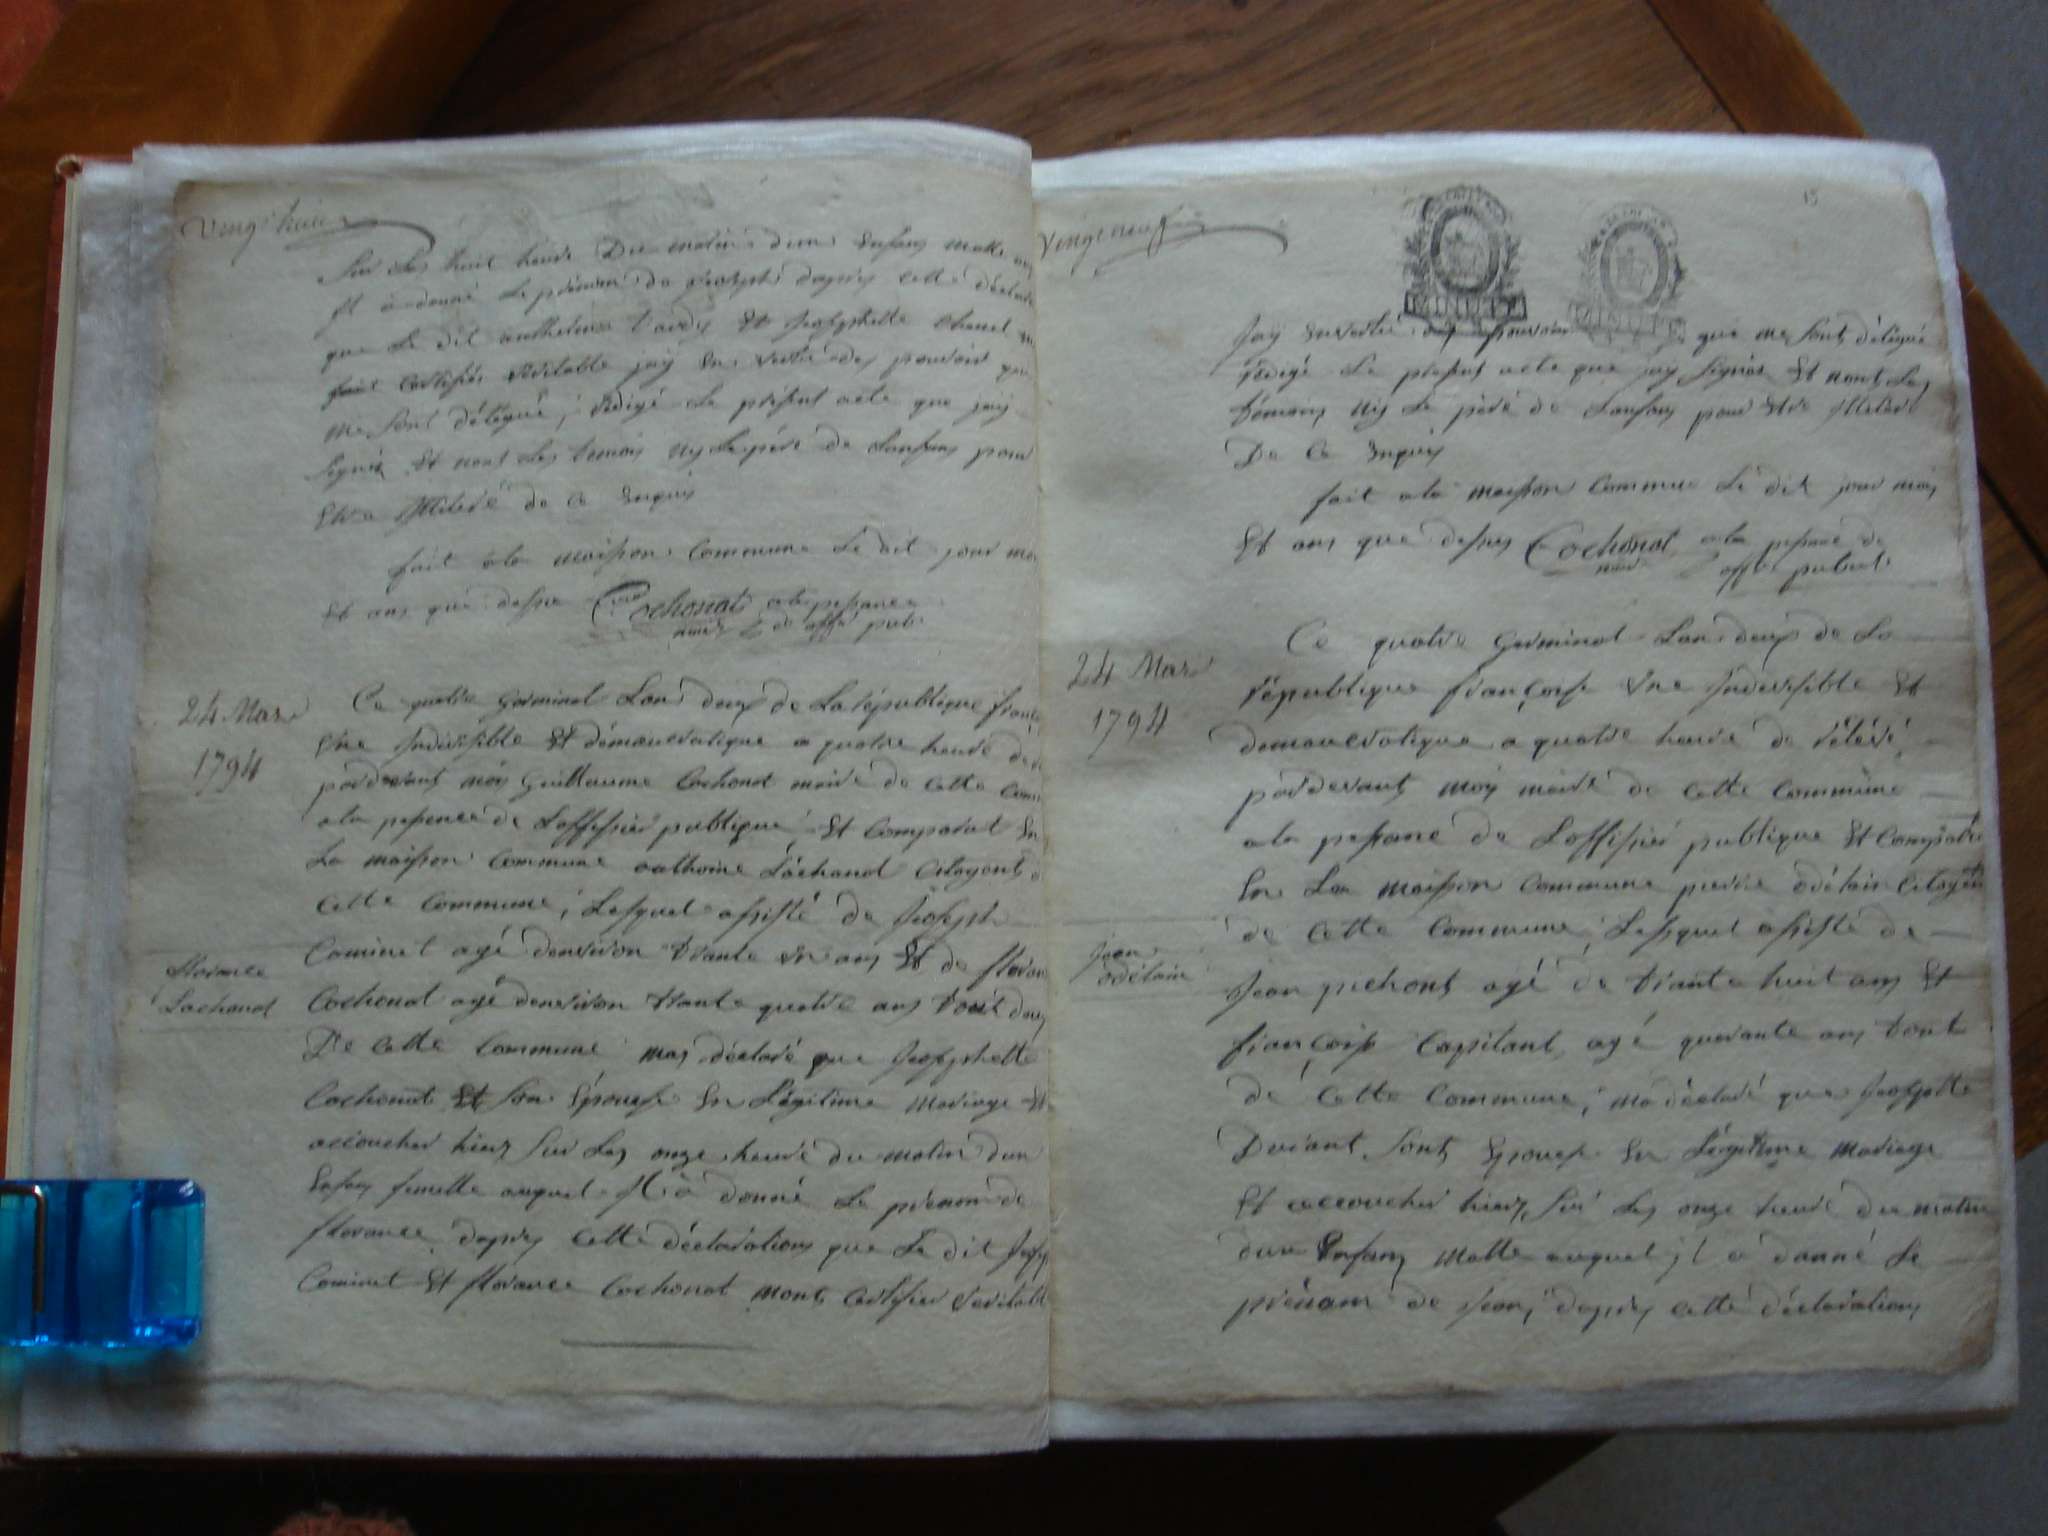 vingt huit
Sur Les huit heure Du matin dun Enfans malle
jl à donné Le prénom de Joseph daprès cette déclara
que Le dit anthelme tardy Et Josephette
fait Certifiér véritable jay En vertu des pouvoir que
me sont délégué, rédigé Le présent acte que jay
Signés Et nont Les temoin ny Le père de Lenfans pour
Etre Illiteré de ce Enquis
fait à la maison Commune Le dit jour moi
Et ans que dessus Cochonat a la pessance
maire de offi publi
24 Mars
1794
Ce quatre Germinal Lan deux de La république franc
Une Indivisible Et démoucratique a quatre heure de
pardevant moy Guillaume Cochonat maire de cette Comm
a la pessence de Loffissier publique Et Comparat En
La maison Commune anthoine Lachand Citoyent d
cette Commune, Lesquel assisté de Joseph
Cominet agé denviron trante Un ans Et de floran
Cochonat agé denviron trante quatre ans tout deux
De cette Commune mas déclaré que Josephette
Cochonat Et Son Epouse En Légitime Mariage Et
accoucher hier Sur Les onze heure du matin dun
Enfan femelle auquel Il à donné Le prénom de
florance daprès cette déclaration que Le dit Josep
Cominet Et florance Cochonat mont Certifier veritabl
florance
Lachand
vingt neuf
15
MINUTE
MINUTE
Jay En vertu des pouvoir que me sont délégué
rédigé Le présent acte que jay Signés Et nont Les
témoins Ny Le père de Lanfans pour Etre Illiteré
De Ce Enquis
fait a la maison Commune Le dit jour mois
Et ans que dessus Cochonat a la pessance de
maire offi publi
24 Mars
1794
Ce quatre Germinal Lan deux de La
république françoise Une Indivisible Et
demoucratique a quatre heure de rélévé
pardevant moy maire de cette Commune
a la pessance de Loffissier publique Et Comparat
En La maison Commune pierre odélain Citoyen
de cette Commune, Lesquel assisté de
Jean pichont agé de trante huit ans Et
françois Capitant agé quarante ans tout
de cette Commune, ma déclaré que Josepte
Durant Sont Epouse En Légitime Mariage
Et accoucher hier Sur Les onze heure du matin
dun Enfans Malle auquel jl à donné Le
prénom de Jean, daprès cette déclaration
Jean
odélain